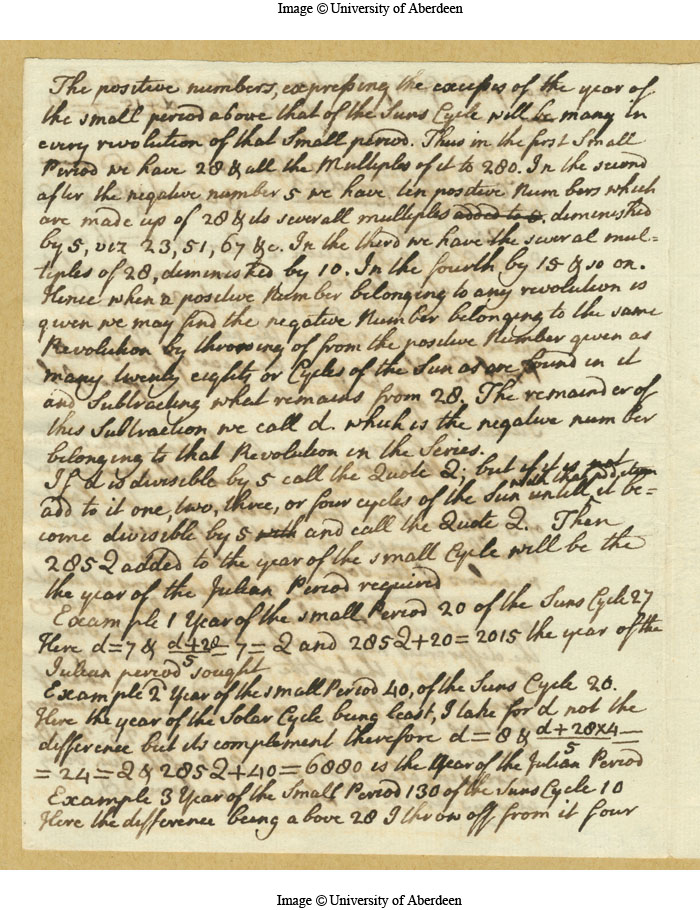 Image © University of Aberdeen
The positive numbers, expressing the excesses of the year of
the small period above that of the Suns Cycle will be many in
every revolution of that Small period. Thus in the first Small
Period we have 28 & all the Multiples of it to 280. In the second
after the negative number 5 we have ten positive Numbers which
are made up of 28 & its severall multiples added to 5, diminished
by 5, viz 23, 51, 67 &c. In the third we have the several mul=
tiples of 28, diminished by 10. In the fourth by 15 & so on.
Hence when a positive Number belonging to any revolution is
given we may find the negative Number belonging to the same
Revolution by throwing of from the positive Number given as
many twenty eights or Cycles of the Sun as are found in it
and Subtracting what remains from 28. The remainder of
this Subtraction we call d. which is the negative number
belonging to that Revolution in the Series.
If d is divisible by 5 call the Quote Q; but if it is not
add to it one, two, three, or four cycles of the Sun untill with that addition it be=
come divisible by 5 with and call the Quote Q. Then
285 Q added to the year of the small Cycle will be the
the year of the Julian Period required
Example 1 Year of the small Period 20 of the Suns Cycle 27
Here d=7 & d+28/5 = 7 = Q and 285Q+20=2015 the year of the
Julian period sought
Example 2 Year of the small Period 40, of the Suns Cycle 20.
Here the year of the Solar Cycle being least, I take for d not the
difference but its complement therefore d=8 & d+28×4/5 =
= 24 = Q & 285Q+40=6880 is the Year of the Julian Period
Example 3 Year of the Small Period 130 of the Suns Cycle 10
Here the difference being above 28 I throw off from it four
Image © University of Aberdeen